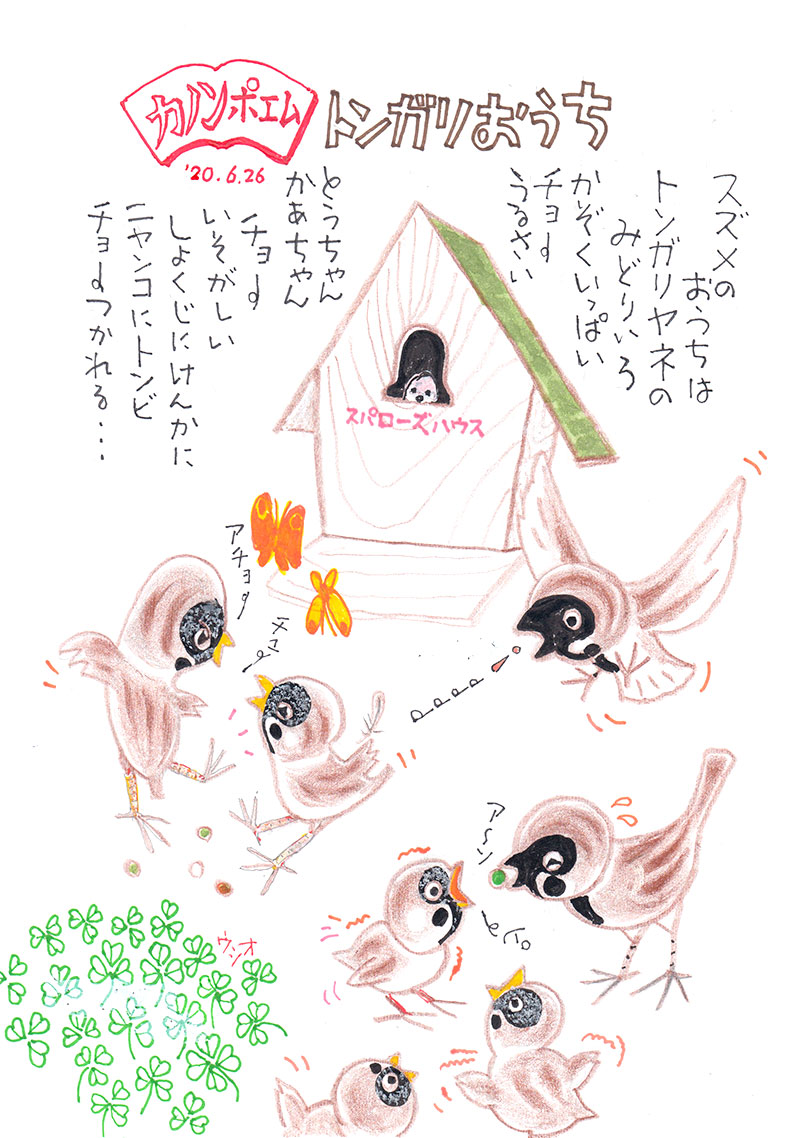 カノンポエム
トンガリおうち
'20.6.26
スズメの
おうちは
トンガリヤネの
みどりいろ
かぞくいっぱい
チョー
うるさい
とうちゃん
かあちゃん
チョー
いそがしい
しょくじにけんかに
ニャンコにトンビ
チョーつかれる・・・
スパローズハウス
アチョー
チュー
PPPP!
ア〜ン
ピィ。
ウシオ